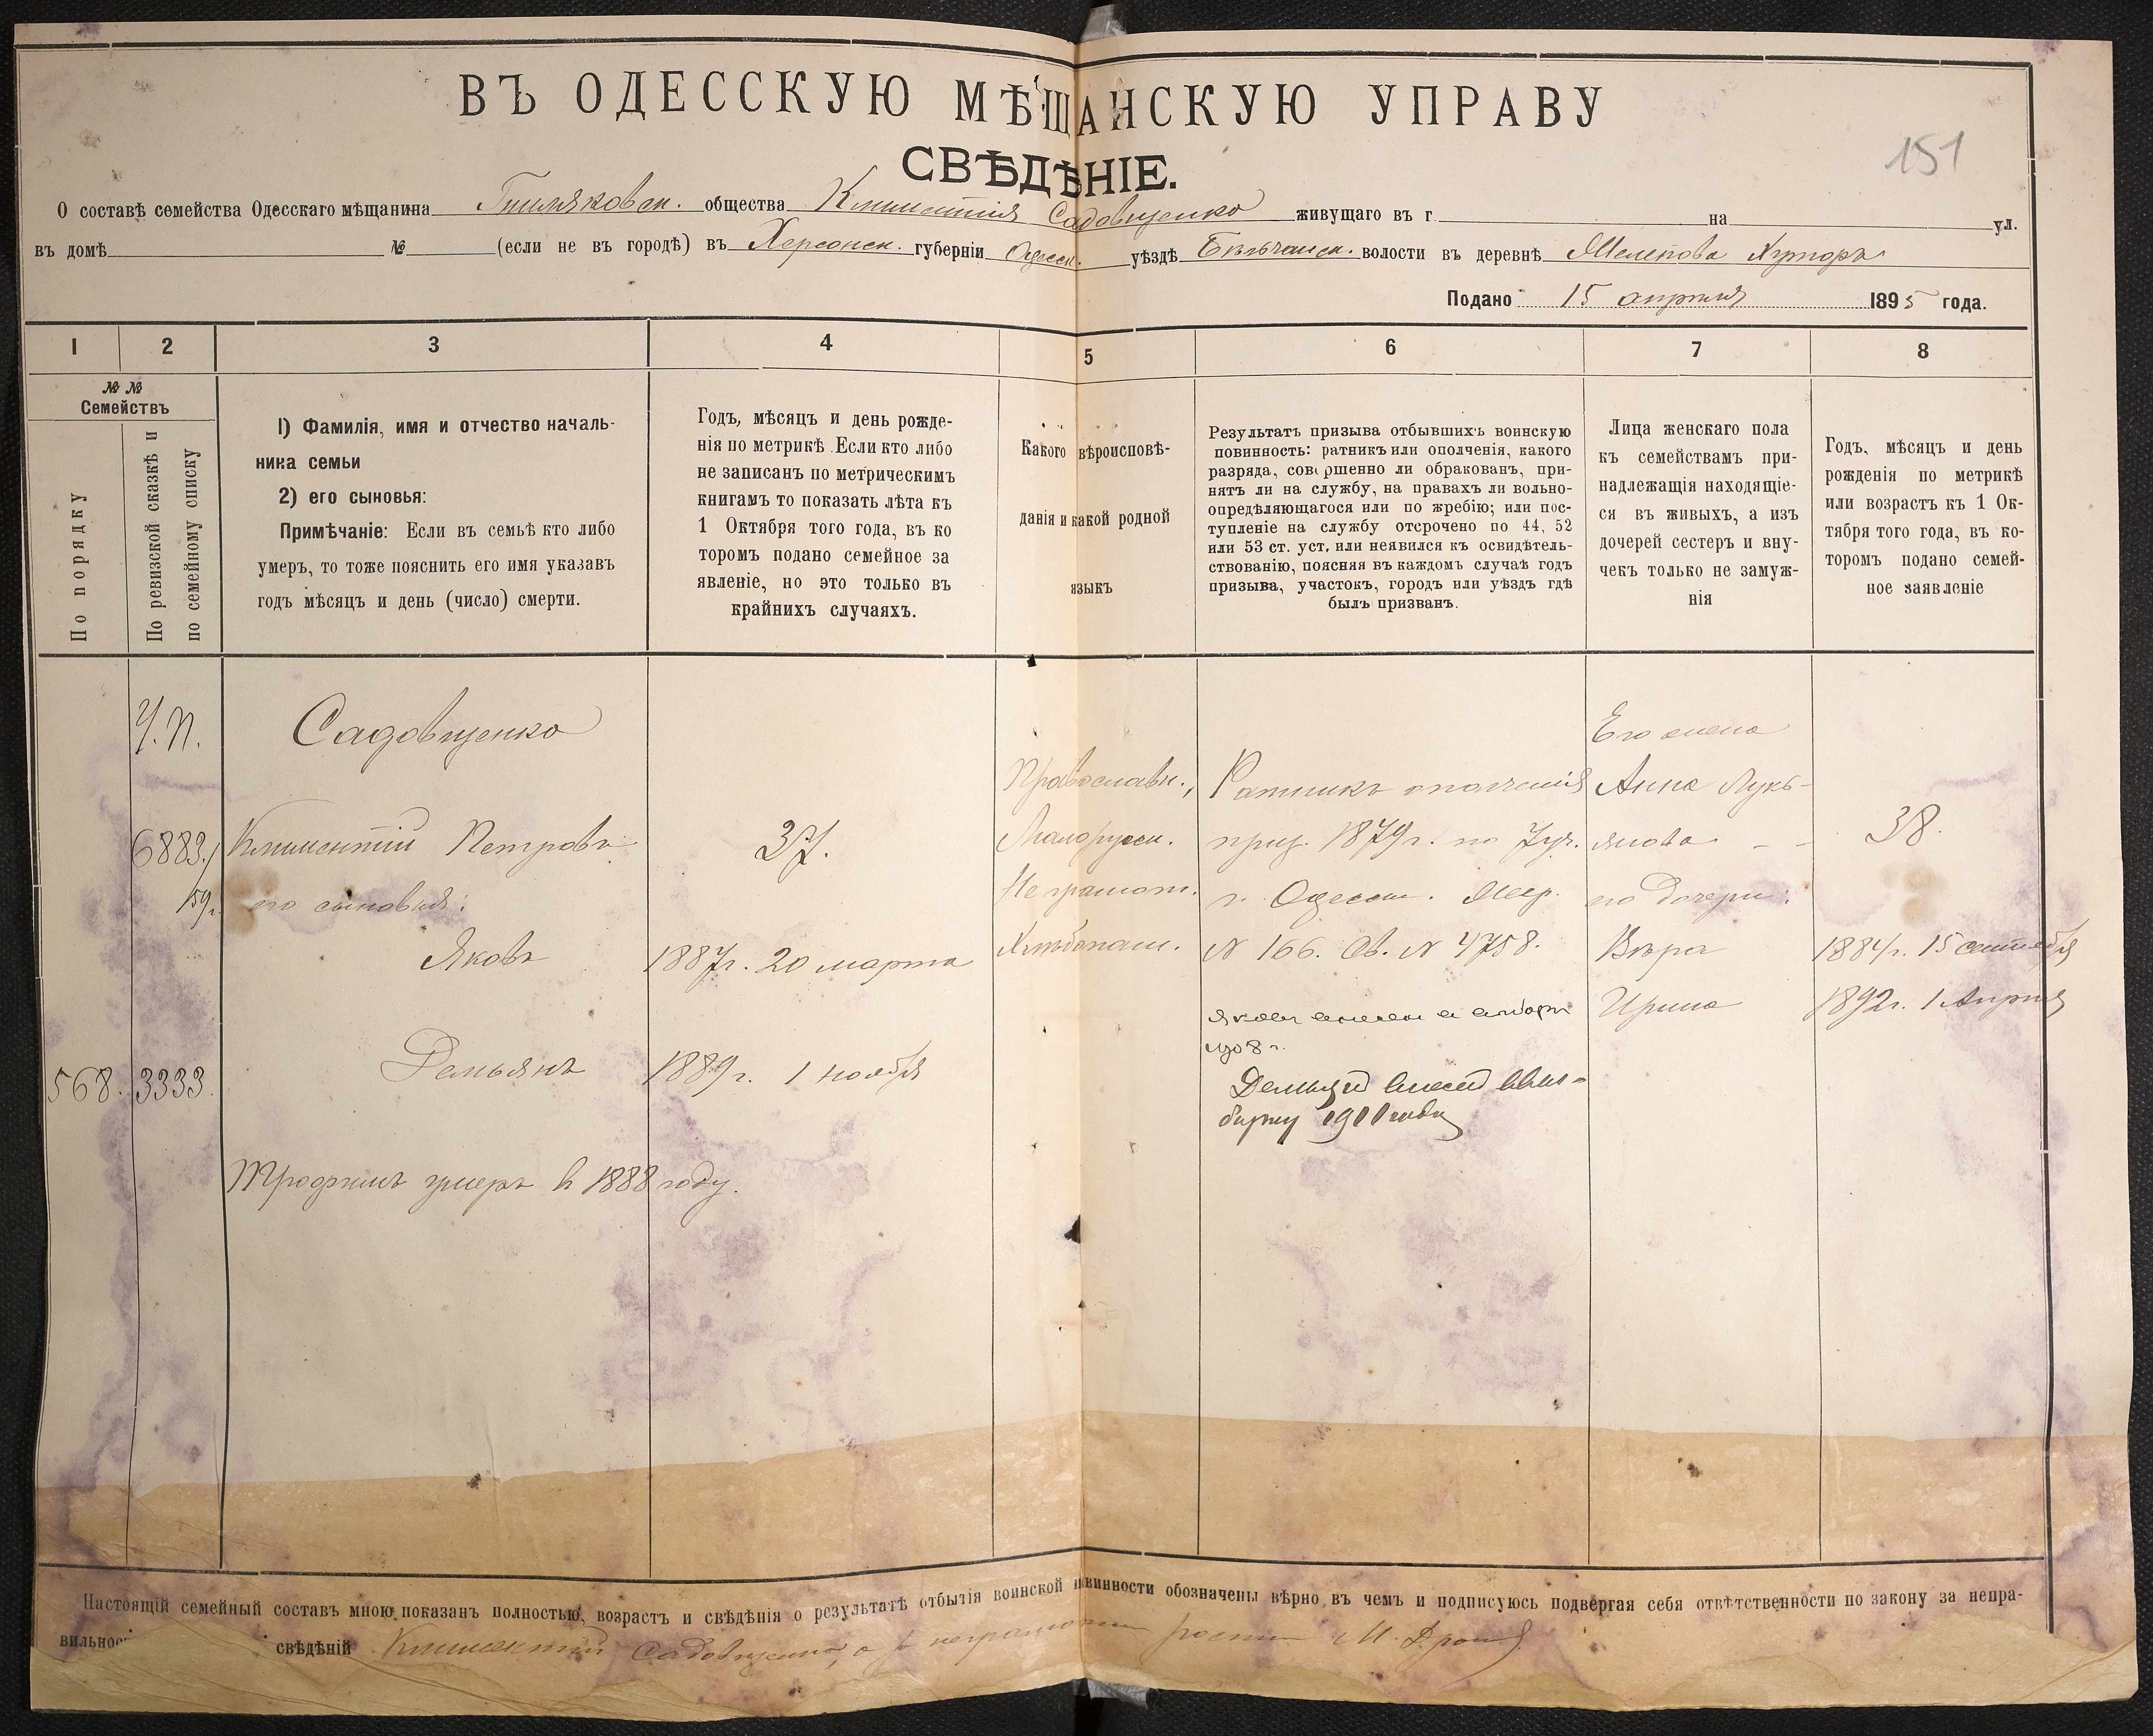 ВЪ ОДЕССКУЮ МѢЩАНСКУЮ УПРАВУ
СВѢДѢНІЕ.
151
О составѣ семейства Одесскаго мѣщанина общества Климентія Садовщенко живущаго въ г на ул.
въ домѣ № (если не въ городѣ) въ Херсонск. губерніи Одесск. уѣздѣ волости въ деревнѣ Хуторъ
Подано 15 апрѣля 1895 года.
1 2 3 4 5 6 7 8
№ №
Семействъ
По порядку
По ревизской сказкѣ и
по семейному списку
1) Фамилія, имя и отчество началь-
ника семьи
2) его сыновья:
Примѣчаніе: Если въ семьѣ кто либо
умеръ, то тоже пояснить его имя указавъ
годъ мѣсяцъ и день (число) смерти.
Годъ, мѣсяцъ и день рожде-
нія по метрикѣ. Если кто либо
не записанъ по метрическимъ
книгамъ то показать лѣта къ
1 Октября того года, въ ко
торомъ подано семейное за
явленіе, но это только въ
крайнихъ случаяхъ.
Какого вѣроисповѣ-
данія и какой родной
языкъ
Результатъ призыва отбывшихъ воинскую
повинность: ратникъ или ополченія, какого
разряда, совершенно ли обракованъ, при-
нятъ ли на службу, на правахъ ли вольно-
опредѣляющагося или по жребію; или пос-
тупленіе на службу отсрочено по 44, 52
или 53 ст. уст. или неявился къ освидѣтель-
ствованію, поясняя въ каждомъ случаѣ годъ
призыва, участокъ, городъ или уѣздъ гдѣ
былъ призванъ.
Лица женскаго пола
къ семействамъ при-
надлежащія находящіе-
ся въ живыхъ, а изъ
дочерей сестеръ и вну-
чекъ только не замуж-
нія
Годъ, мѣсяцъ и день
рожденія по метрикѣ
или возрастъ къ 1 Ок-
тября того года, въ ко-
торомъ подано семей-
ное заявленіе
Ч.П.
6883/
159г.
568. 3333.
Садовщенко
Климентій Петровъ
его сыновья:
Яковъ
Демьянъ
Трофимъ умеръ в 1888 году.
37.
1887г. 20 марта
1889г. 1 ноября
Православн.,
Малорусск.
Неграмот.
Хлѣбопаш.
Ратникъ ополченія
приз. 1879г. по 7 уч.
г. Одессы.
№ 166. Св. № 4758.
1908 г.
1911 года
Его жена
Анна Лукь-
янова - -
его дочери:
Вѣра
Ирина
38.
1884г. 15 сентября
1892г. 1 Апрѣля
Настоящій семейный составъ мною показанъ полностью, возрастъ и свѣдѣнія о результатѣ отбытія воинской повинности обозначены вѣрно въ чемъ и подписуюсь подвергая себя отвѣтственности по закону за непра-
вильность свѣдѣній Климентій Садовщенко, а